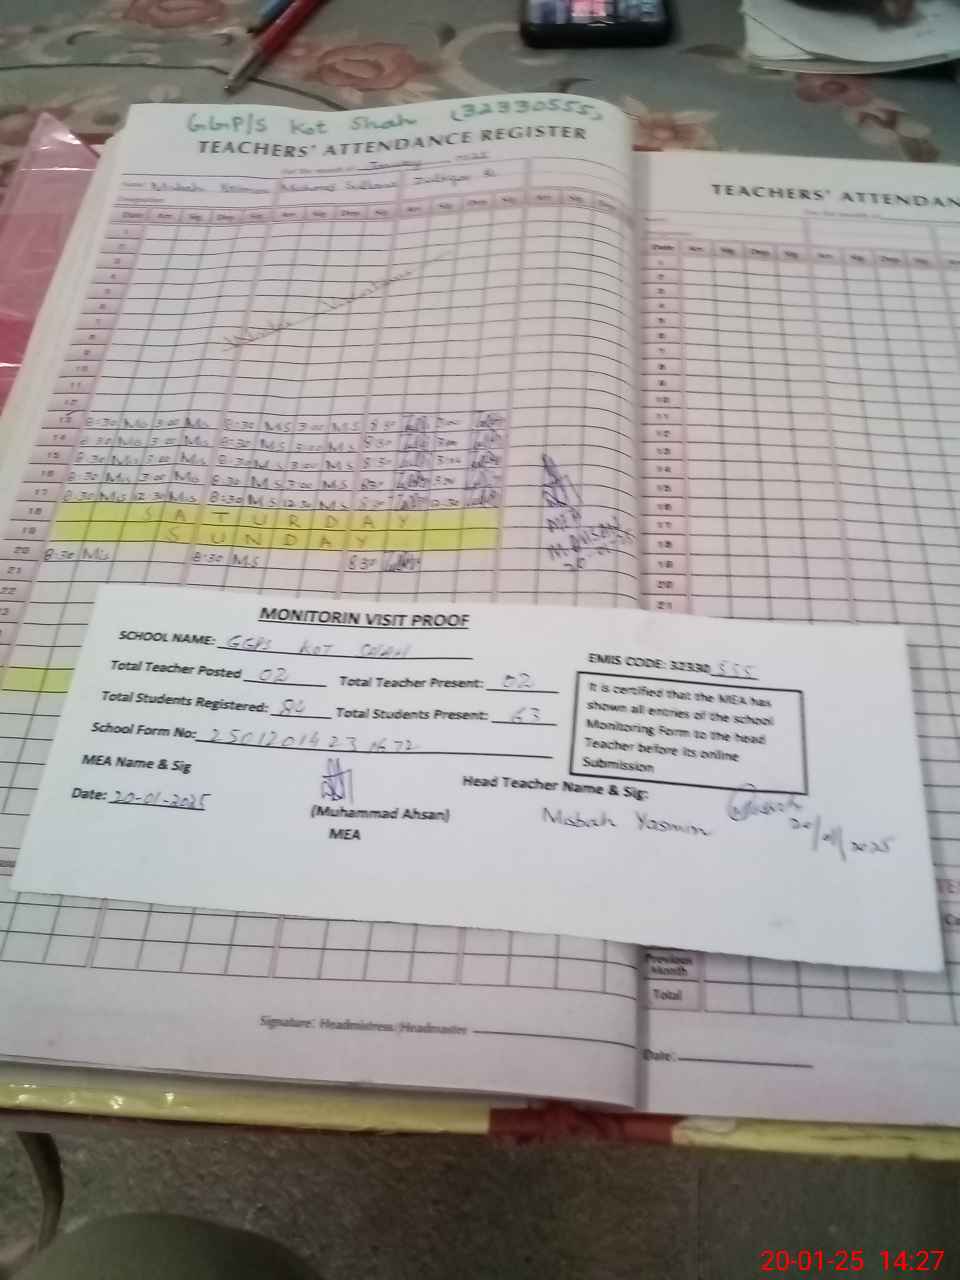 GGP/S Kot Shah (32330555)
TEACHERS' ATTENDANCE REGISTER
For the month of January 2025
Date Arr. Sig. Dep. Sig. Arr. Sig. Dep. Sig. Arr. Sig. Dep. Sig. Arr. Sig.
1
2
3
4
5
6
7
8
9
10
11
12
13 8:30 Ms 3:00 Ms 8:30 M S 3:00 M S 8:30
14 8:30 Ms 3:00 Ms 8:30 M S 3:00 M S 8:30 3:00
15 8:30 Ms 3:00 Ms 8:30 M S 3:00 M S 8:30
16 8:30 Ms 3:00 Ms 8:30 M S 3:00 M S 8:30
17 8:30 Ms 12:30 Ms 8:30 M S 12:30 M S 8:30 12:30
18 SATURDAY
19 SUNDAY
20 8:30 Ms 8:30 M S 8:30
21
22
TEACHERS' ATTENDAN
Date Arr. Sig. Dep. Sig. Arr. Sig. Dep. Sig.
1
2
3
4
5
6
7
8
9
10
11
12
13
14
15
16
17
18
19
20
21
MONITORIN VISIT PROOF
SCHOOL NAME: GGPS KOT SHAH
EMIS CODE: 32330555
Total Teacher Posted 02 Total Teacher Present: 02
Total Students Registered: Total Students Present: 63
School Form No:
It is certified that the MEA has
shown all entries of the school
Monitoring Form to the head
Teacher before its online
Submission
MEA Name & Sig
Date: 20-01-2025
(Muhammad Ahsan)
MEA
Head Teacher Name & Sig:
Mabah Yasmin
20/01/2025
Previous
Month
Total
Signature: Headmistress/Headmaster
Date:
20-01-25 14:27